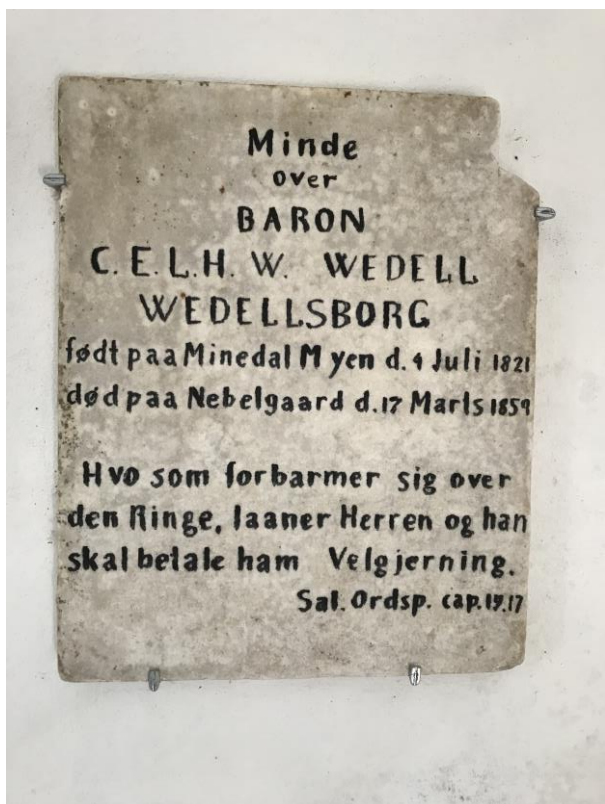 Minde
over
BARON
C. E. L. H. W. WEDELL
WEDELLSBORG
født paa Minedal Myen d. 4 Juli 1821
død paa Nebelgaard d. 17 Marts 1859
Hvo som forbarmer sig over
den Ringe, laaner Herren og han
skal betale ham Velgjerning.
Sal. Ordsp. cap. 19.17